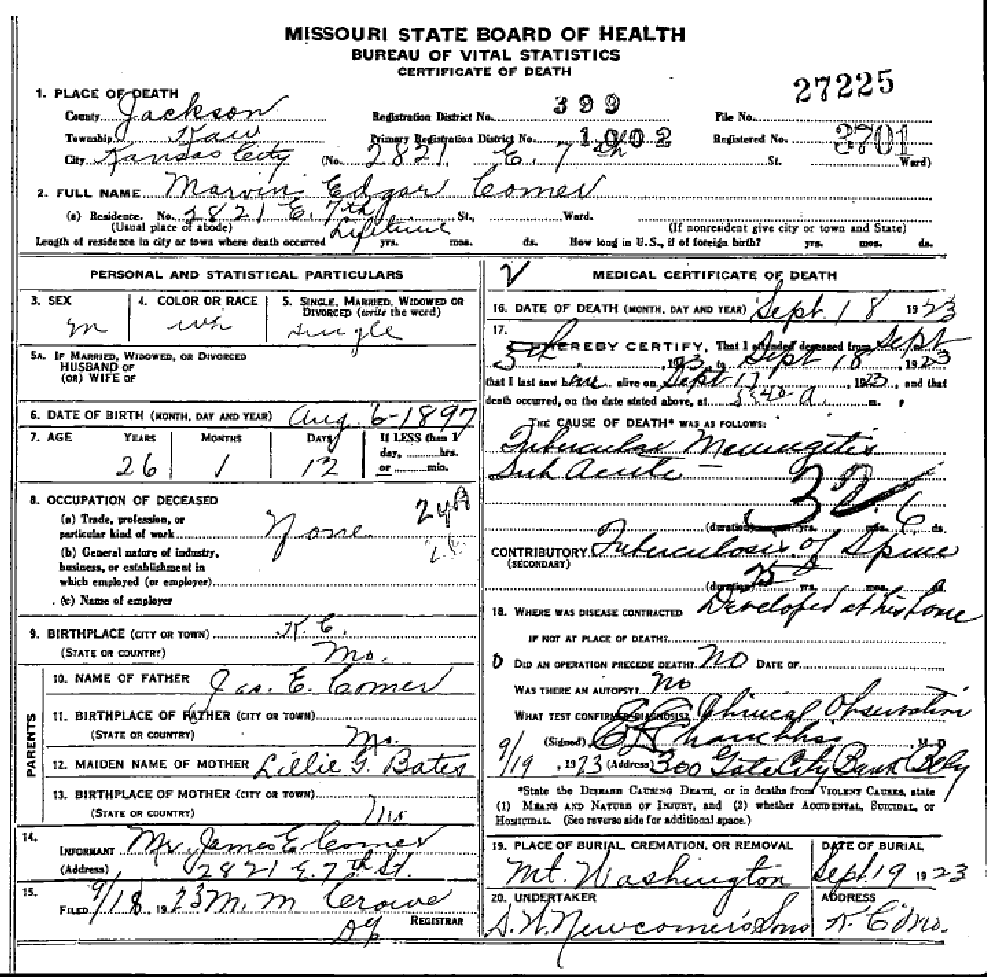 MISSOURI STATE BOARD OF HEALTH
BUREAU OF VITAL STATISTICS
CERTIFICATE OF DEATH
27225
1. PLACE OF DEATH
County Jackson Registration District No. 399 File No.
Township Kaw Primary Registration District No. 1002 Registered No. 3701
City Kansas City (No. 2821 E. 7th St. Ward)
2. FULL NAME Marvin Edgar Comer
(a) Residence. No. 2821 E. 7th St., Ward.
(Usual place of abode) (If nonresident give city or town and State)
Length of residence in city or town where death occurred Lifetime yrs. mos. ds. How long in U.S., if of foreign birth? yrs. mos. ds.
PERSONAL AND STATISTICAL PARTICULARS
3. SEX 4. COLOR OR RACE 5. SINGLE, MARRIED, WIDOWED OR
DIVORCED (write the word)
m wh single
5A. IF MARRIED, WIDOWED, OR DIVORCED
HUSBAND OF
(OR) WIFE OF
6. DATE OF BIRTH (MONTH, DAY AND YEAR) Aug 6-1897
7. AGE YEARS MONTHS DAYS If LESS than 1
day, hrs.
or min.
26 1 12
8. OCCUPATION OF DECEASED
(a) Trade, profession, or
particular kind of work None
(b) General nature of industry,
business, or establishment in
which employed (or employer)
(c) Name of employer
9. BIRTHPLACE (CITY OR TOWN) K C.
(STATE OR COUNTRY) Mo.
PARENTS
10. NAME OF FATHER Jas. E. Comer
11. BIRTHPLACE OF FATHER (CITY OR TOWN)
(STATE OR COUNTRY) Mo.
12. MAIDEN NAME OF MOTHER Lillie G. Bates
13. BIRTHPLACE OF MOTHER (CITY OR TOWN)
(STATE OR COUNTRY) Mo
14.
INFORMANT Mr James E Comer
(Address) 2821 E. 7th St.
15.
FILED 9/18, 1923 M. M Crowe
REGISTRAR
V MEDICAL CERTIFICATE OF DEATH
16. DATE OF DEATH (MONTH, DAY AND YEAR) Sept. 18 1923
17.
I HEREBY CERTIFY, That I attended deceased from Sept
5th, 1923, to Sept 18, 1923
that I last saw him alive on Sept 17, 1923, and that
death occurred, on the date stated above, at 5:40 a. m.
THE CAUSE OF DEATH* WAS AS FOLLOWS:
Tubercular Meningitis
Sub Acute
32
(duration) yrs. mos. 6 ds.
CONTRIBUTORY Tuberculosis of Spine
(SECONDARY)
(duration) 25 yrs. mos. ds.
18. WHERE WAS DISEASE CONTRACTED Developed at his home
IF NOT AT PLACE OF DEATH?
DID AN OPERATION PRECEDE DEATH? No DATE OF
WAS THERE AN AUTOPSY? No
WHAT TEST CONFIRMED DIAGNOSIS? Clinical Observation
(Signed) M. D.
9/19, 1923 (Address) 300 Gate City Bank Bldg
*State the DISEASE CAUSING DEATH, or in deaths from VIOLENT CAUSES, state
(1) MEANS AND NATURE OF INJURY, and (2) whether ACCIDENTAL, SUICIDAL, or
HOMICIDAL. (See reverse side for additional space.)
19. PLACE OF BURIAL, CREMATION, OR REMOVAL DATE OF BURIAL
Mt. Washington Sept 19 1923
20. UNDERTAKER ADDRESS
D. W. Newcomer's Sons K. C. Mo.